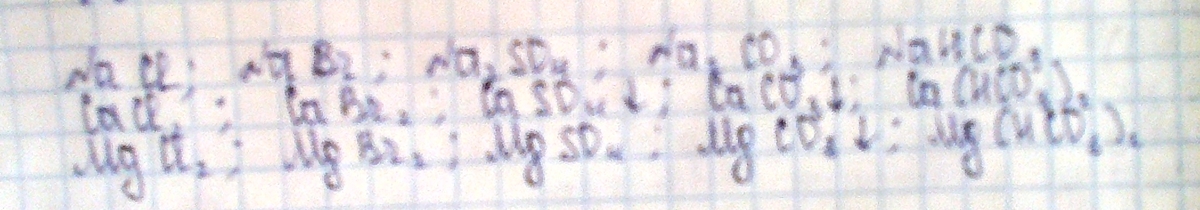 NaCl; NaBr; Na₂SO₄; Na₂CO₃; NaHCO₃
CaCl₂; CaBr₂; CaSO₄↓; CaCO₃↓; Ca(HCO₃)₂
MgCl₂; MgBr₂; MgSO₄; MgCO₃↓; Mg(HCO₃)₂